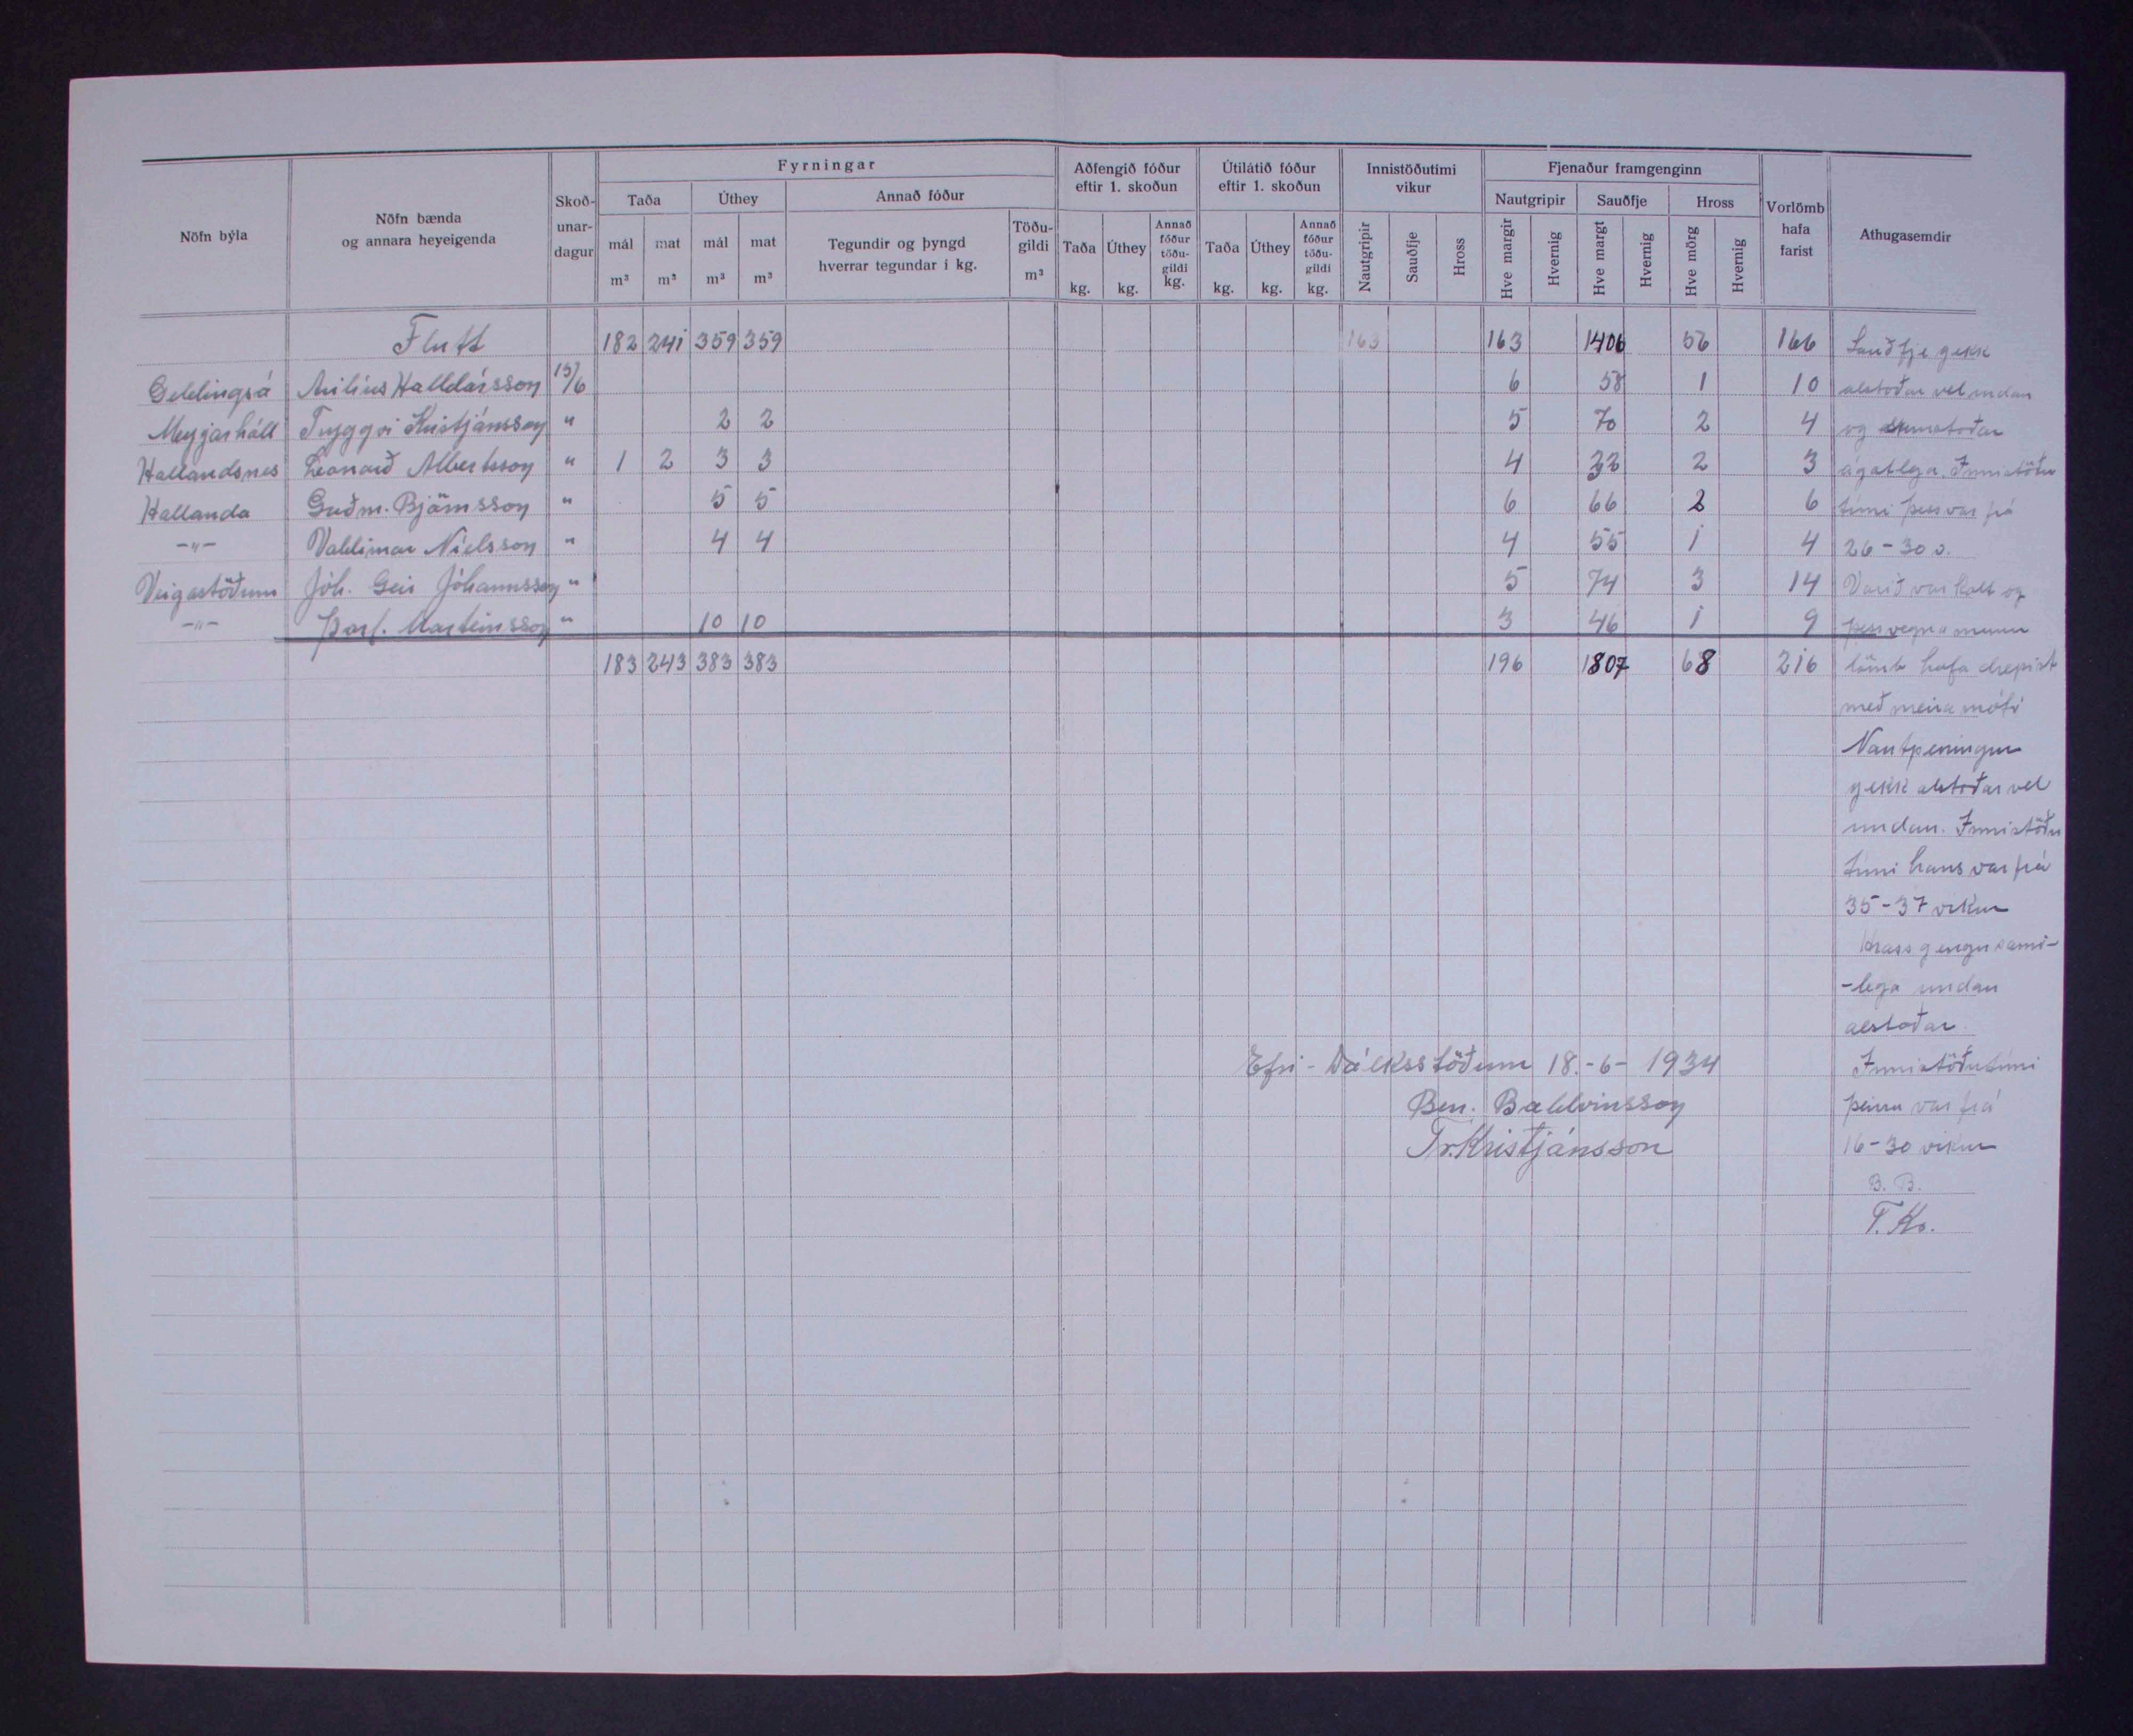 Nöfn býla | Nöfn bænda og annara heyeigenda | Skoð-unar-dagur | Fyrningar | Aðfengið fóður eftir 1. skoðun | Útilátið fóður eftir 1. skoðun | Innistöðutími vikur | Fjenaður framgenginn | Vorlömb hafa farist | Athugasemdir
Taða | Úthey | Annað fóður | Nautgripir | Sauðfje | Hross
mál m³ | mat m³ | mál m³ | mat m³ | Tegundir og þyngd hverrar tegundar í kg. | Töðu-gildi m³ | Taða kg. | Úthey kg. | Annað fóður töðu-gildi kg. | Taða kg. | Úthey kg. | Annað fóður töðu-gildi kg. | Nautgripir | Sauðfje | Hross | Hve margir | Hvernig | Hve margt | Hvernig | Hve mörg | Hvernig
Flutt 182 241 359 359 163 163 1406 56 166 Sauðfje gekk
Geldingsá Halldórsson 15/6 6 58 1 10 alstaðar vel undan
Meyjarhóll Tryggvi Kristjánsson " 2 2 5 70 2 4 og sumstaðar
Hallandsnes Leonarð Albertsson " 1 2 3 3 4 32 2 3 ágætlega. Innistöðu
Hallanda Guðm. Björnsson " 5 5 6 66 2 6 tími þess var frá
-"- Valdimar Níelsson " 4 4 4 55 1 4 26-30 v.
Veigastöðum Jóh. Geir Jóhannsson " 5 74 3 14 Vorið var kalt og
-"- Þorl. Marteinsson " 10 10 3 46 1 9 þess vegna munu
183 243 383 383 196 1807 68 216 lömb hafa drepist
með meira móti
Nautpeningur
gekk alstaðar vel
undan. Innistöðu
tími hans var frá
35-37 vikur
Hross gengu sæmi-
-lega undan
alstaðar.
Efri-Dálksstöðum 18.-6-1934 Innistöðutími
Ben. Baldvinsson þeirra var frá
Tr. Kristjánsson 16-30 vikur
B. B.
T. Kr.